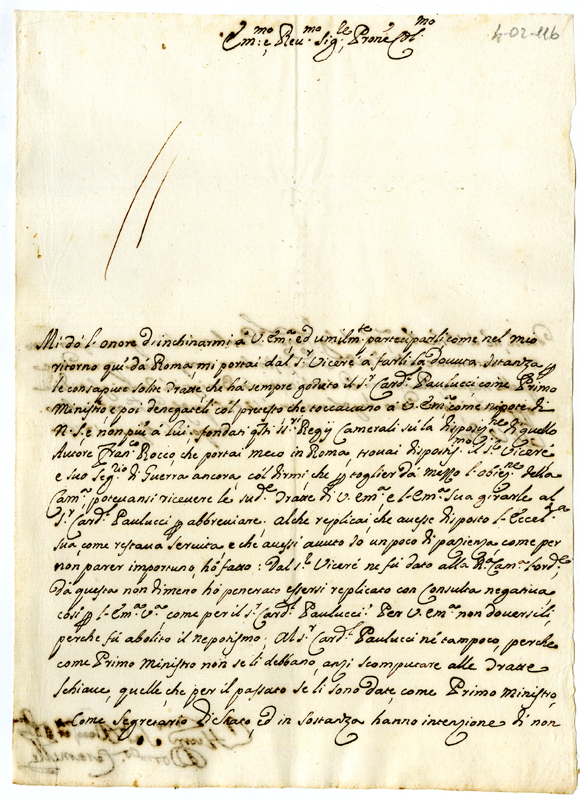 4-02-116
Em:mo e Reu:mo Sig:re, Prone Col:mo
Mi dò l'onore d'inchinarmi à V. Em:a ed umilm:te parteciparli come nel mio
ritorno quì dà Roma mi portai dal S.r Vicerè à farli la dovuta istanza p
le consapute solte Tratte che hà sempre goduto il S.r Card.l Paulucci come Primo
Ministro e poi denegateli col pretesto che toccavano à V. Em:a come nipote di
N. S. e non più à lui: fondati q.sti S.ri Regij Camerali sù la disposiz.ne di quello
Autore Fran.co Rocco, che portai meco in Roma, trovai dispostis.mo il S.r Vicerè
e suo Seg.rio di Guerra ancora col dirmi che p toglier dà mezzo l'obiez.ne della
Cam.a potevansi ricevere le sud.e Tratte di V. Em.a e l'Em.a Sua girarle al
S.r Card.l Paulucci p abbreviare. Al che replicai che avesse disposto l'Eccel.za
Sua, come restava servita e che avessi avuto dà un poco di pazienza come per
non parer importuno, hò fatto: Dal S.r Vicerè ne fù dato alla R.a Cam.a l'ord.e,
dà questa non dimeno hò penetrato essersi replicato con Consulta negativa
così p l'Em.a V.a come per il S.r Card.l Paulucci. Per V. Em.a non doverseli,
perche fù abolito il nepotismo. Al S.r Card.l Paulucci nè tampoco, perche
come Primo Ministro non se li debbano, anzi scomputare alle Tratte
schiave, quelle che per il passato se li sono date come Primo Ministro,
Come Segretario di Stato, ed in sostanza hanno intenzione di non